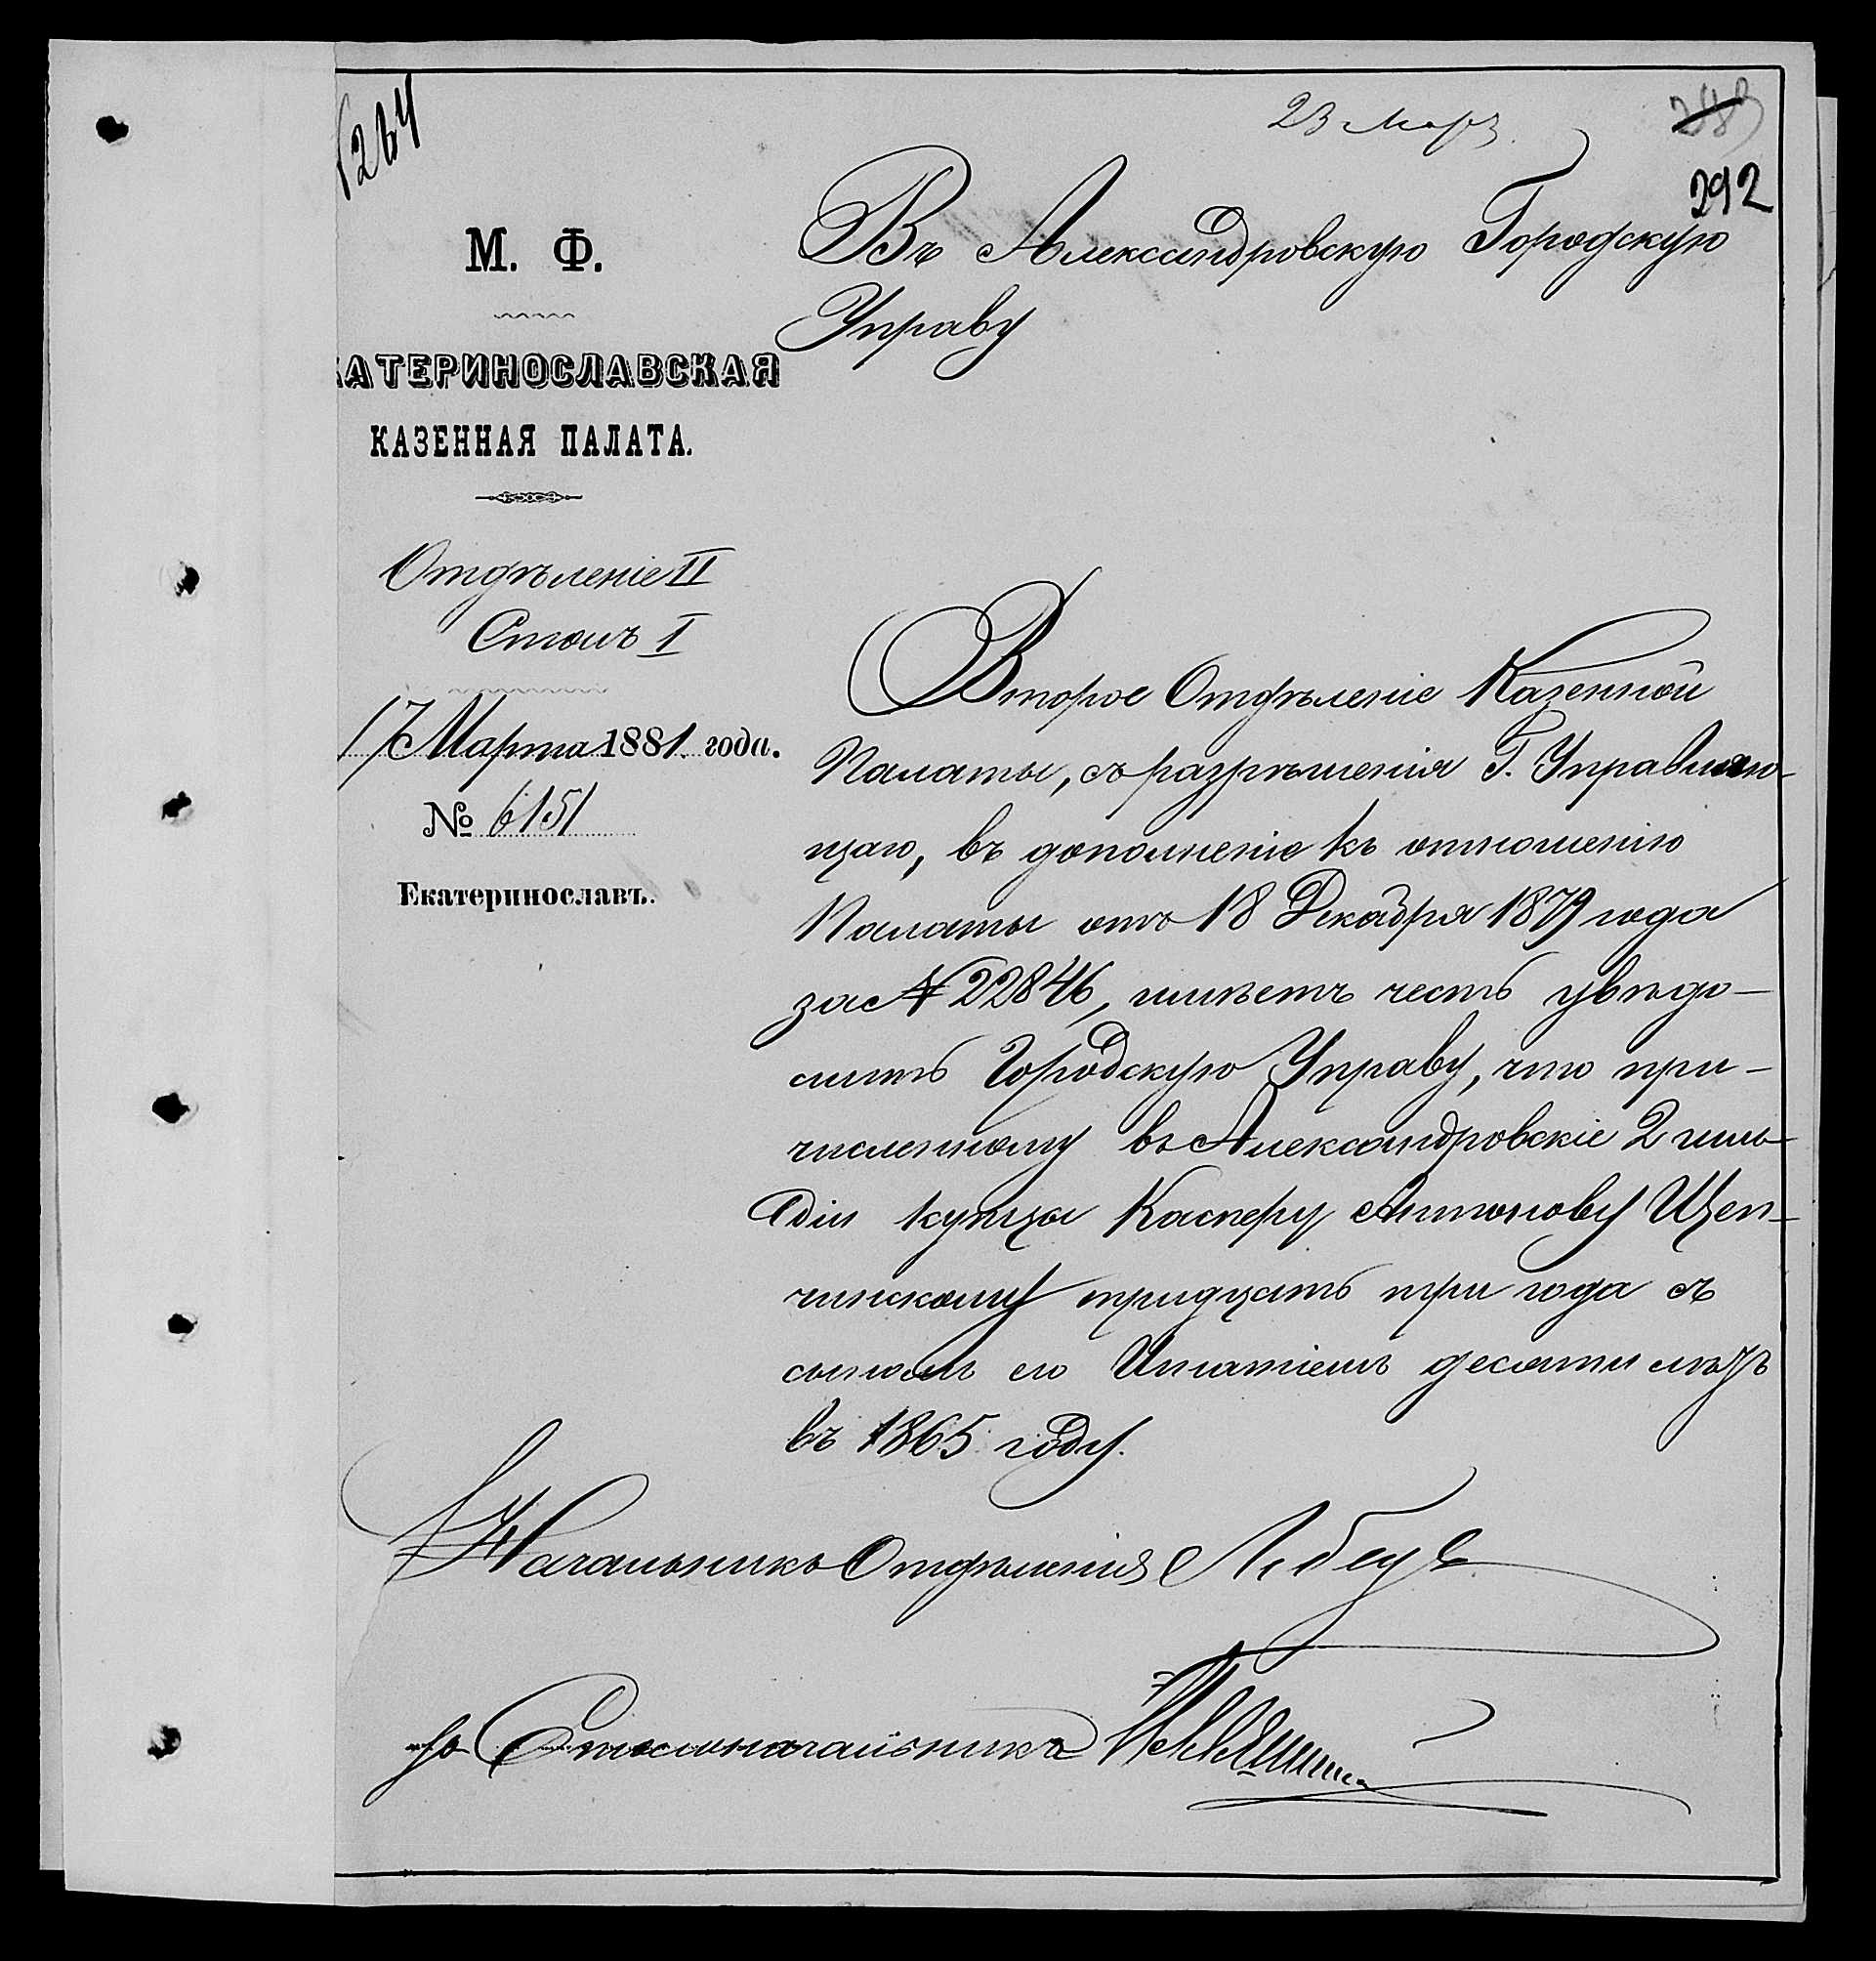 1264
23 Мар
283
292
М. Ф.
КАТЕРИНОСЛАВСКАЯ
КАЗЕННАЯ ПАЛАТА.
Отдѣленіе II
Столъ I
17 Марта 1881 года.
№ 6151
Екатеринославъ.
Въ Александровскую Городскую
Управу
Второе Отдѣленіе Казенной
Палаты, съ разрѣшенія Г. Управляю-
щаго, въ дополненіе къ отношенію
Палаты отъ 18 Декабря 1879 года
за № 22846, имѣетъ честь увѣдо-
мить Городскую Управу, что при-
численному въ Александровскіе 2 гиль-
діи купцы Касперу Антонову Щеп-
чинскому тридцать три года съ
сыномъ его Игнатіемъ десяти лѣтъ
въ 1865 году.
Начальникъ Отдѣленія
За Столоначальника